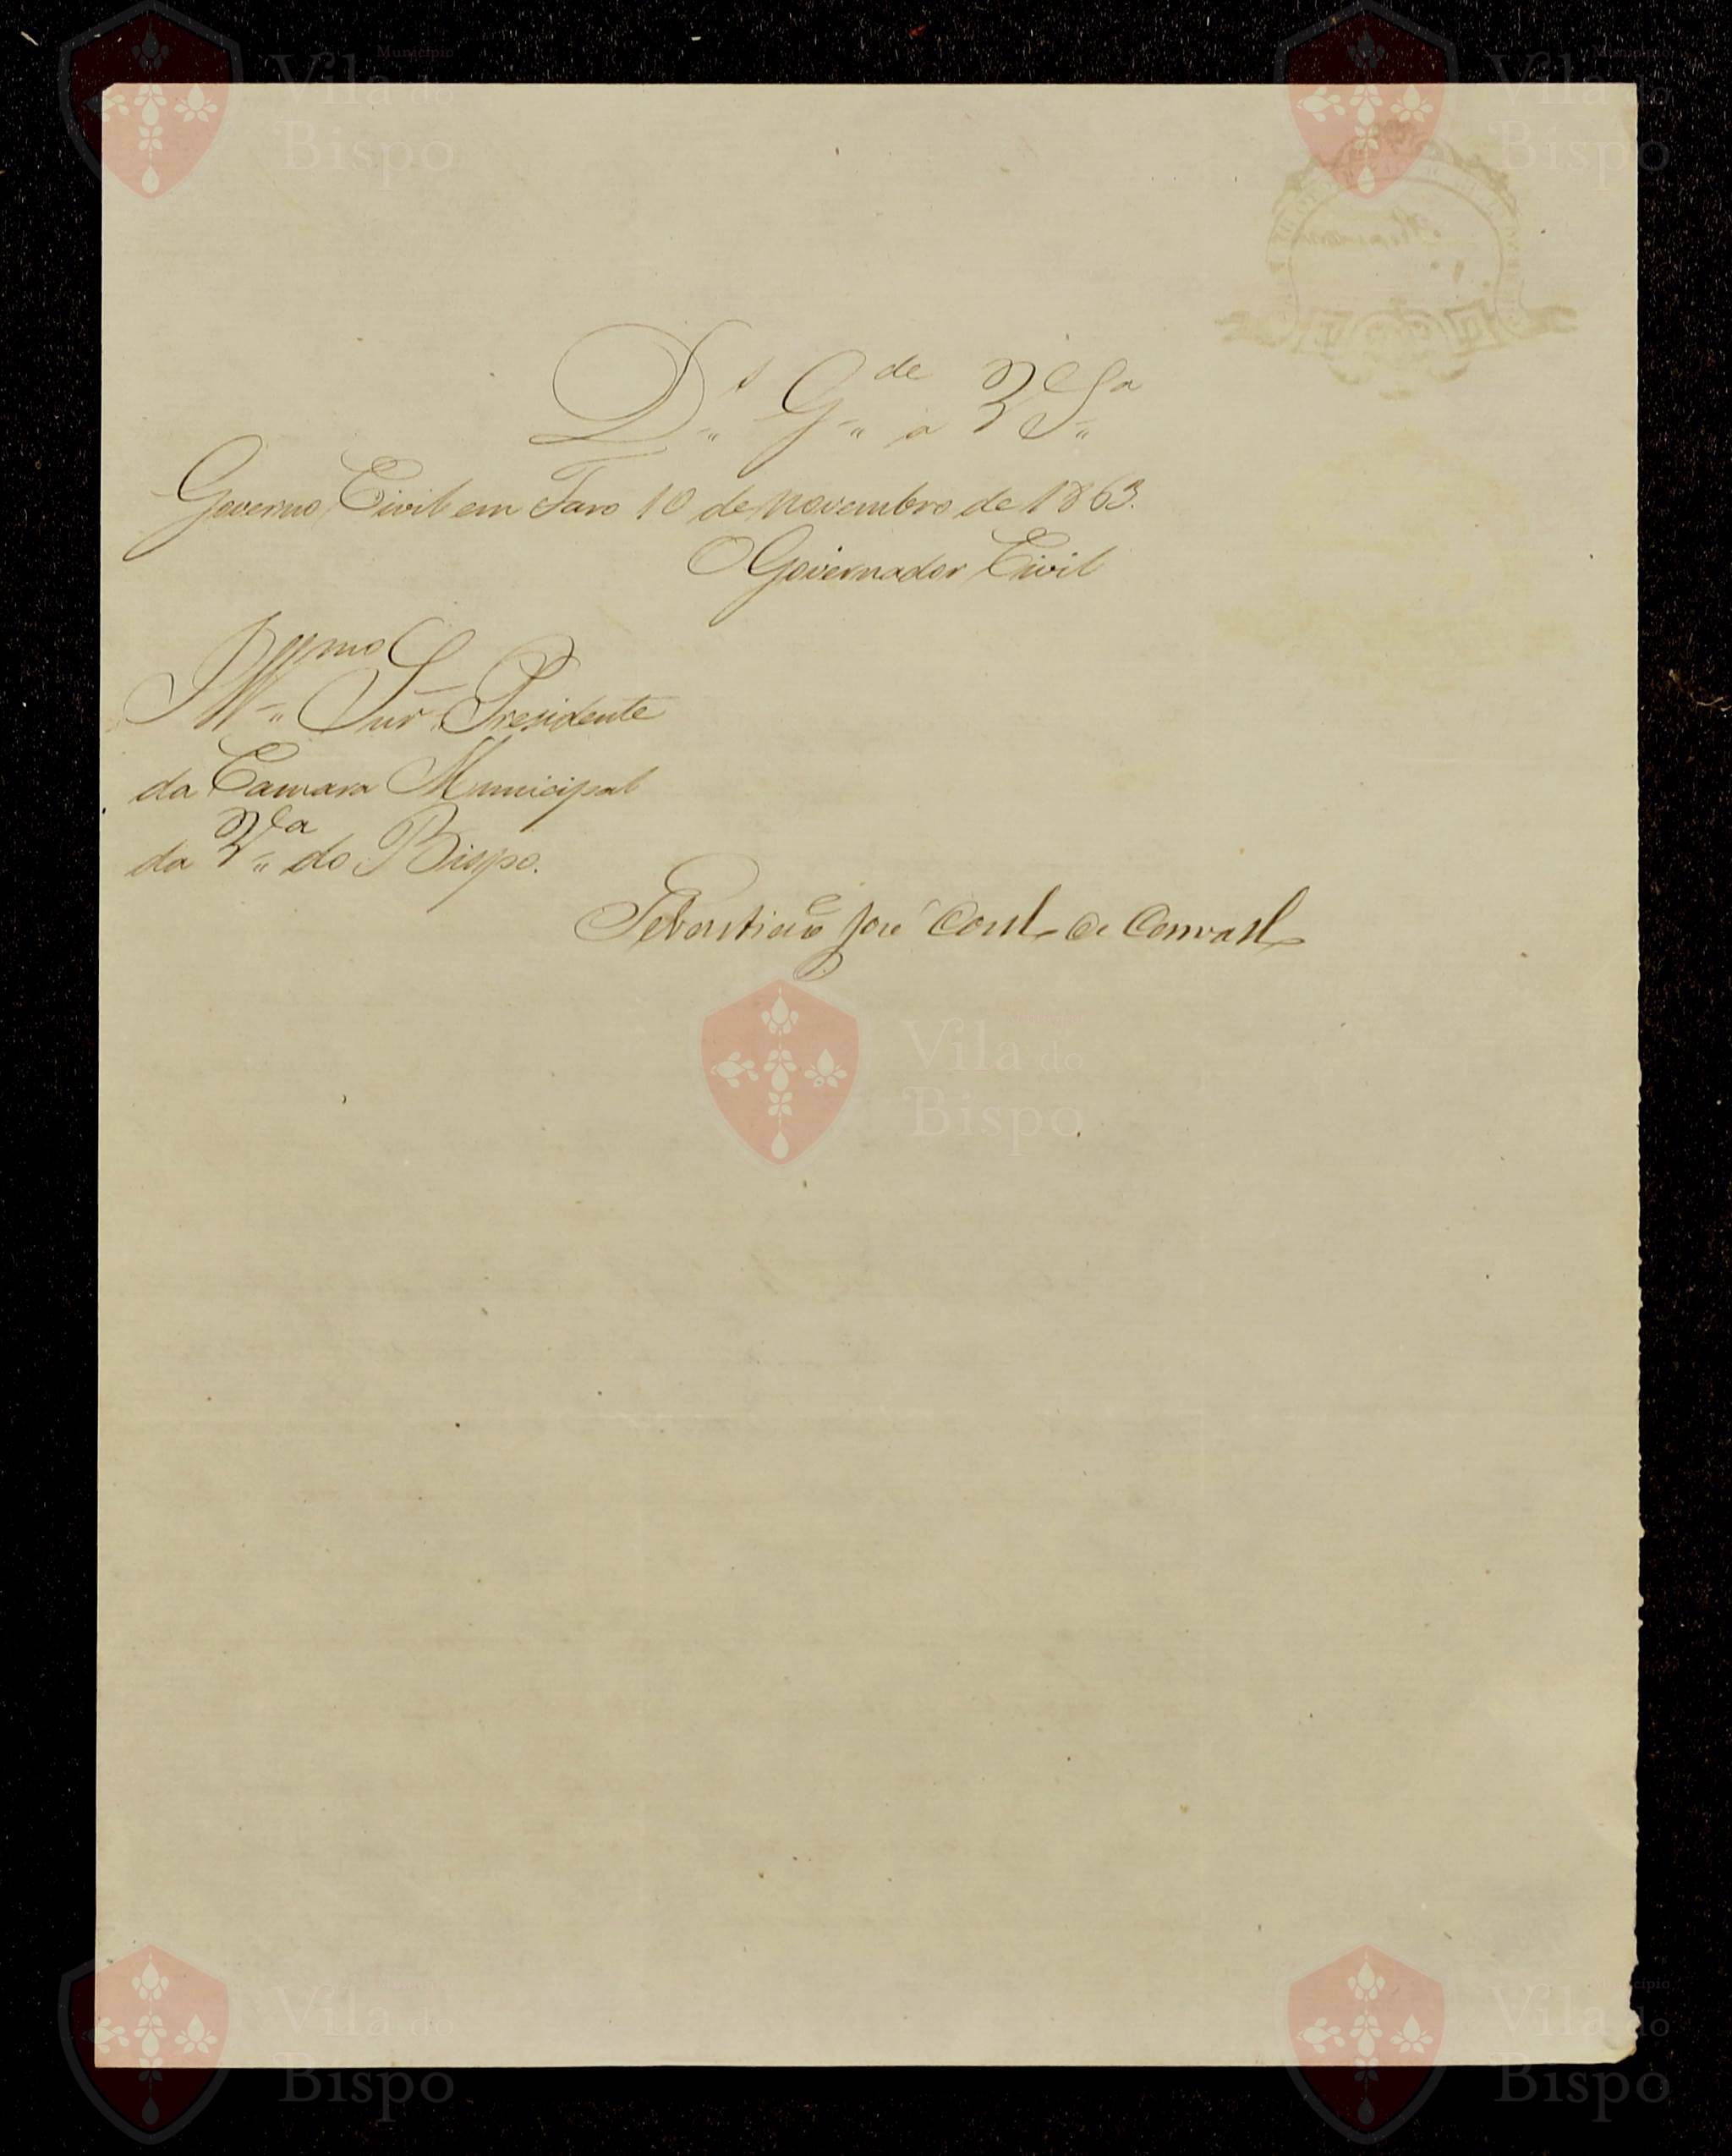 Município
Vila do
Bispo
Município
Vila do
Bispo
D.s G.de a V S.a
Governo Civil em Faro 10 de Novembro de 1863.
O Governador Civil
Ill.mo Snr Presidente
da Camara Municipal
da V.a do Bispo.
Sebastião José
Município
Vila do
Bispo
Município
Vila do
Bispo
Município
Vila do
Bispo